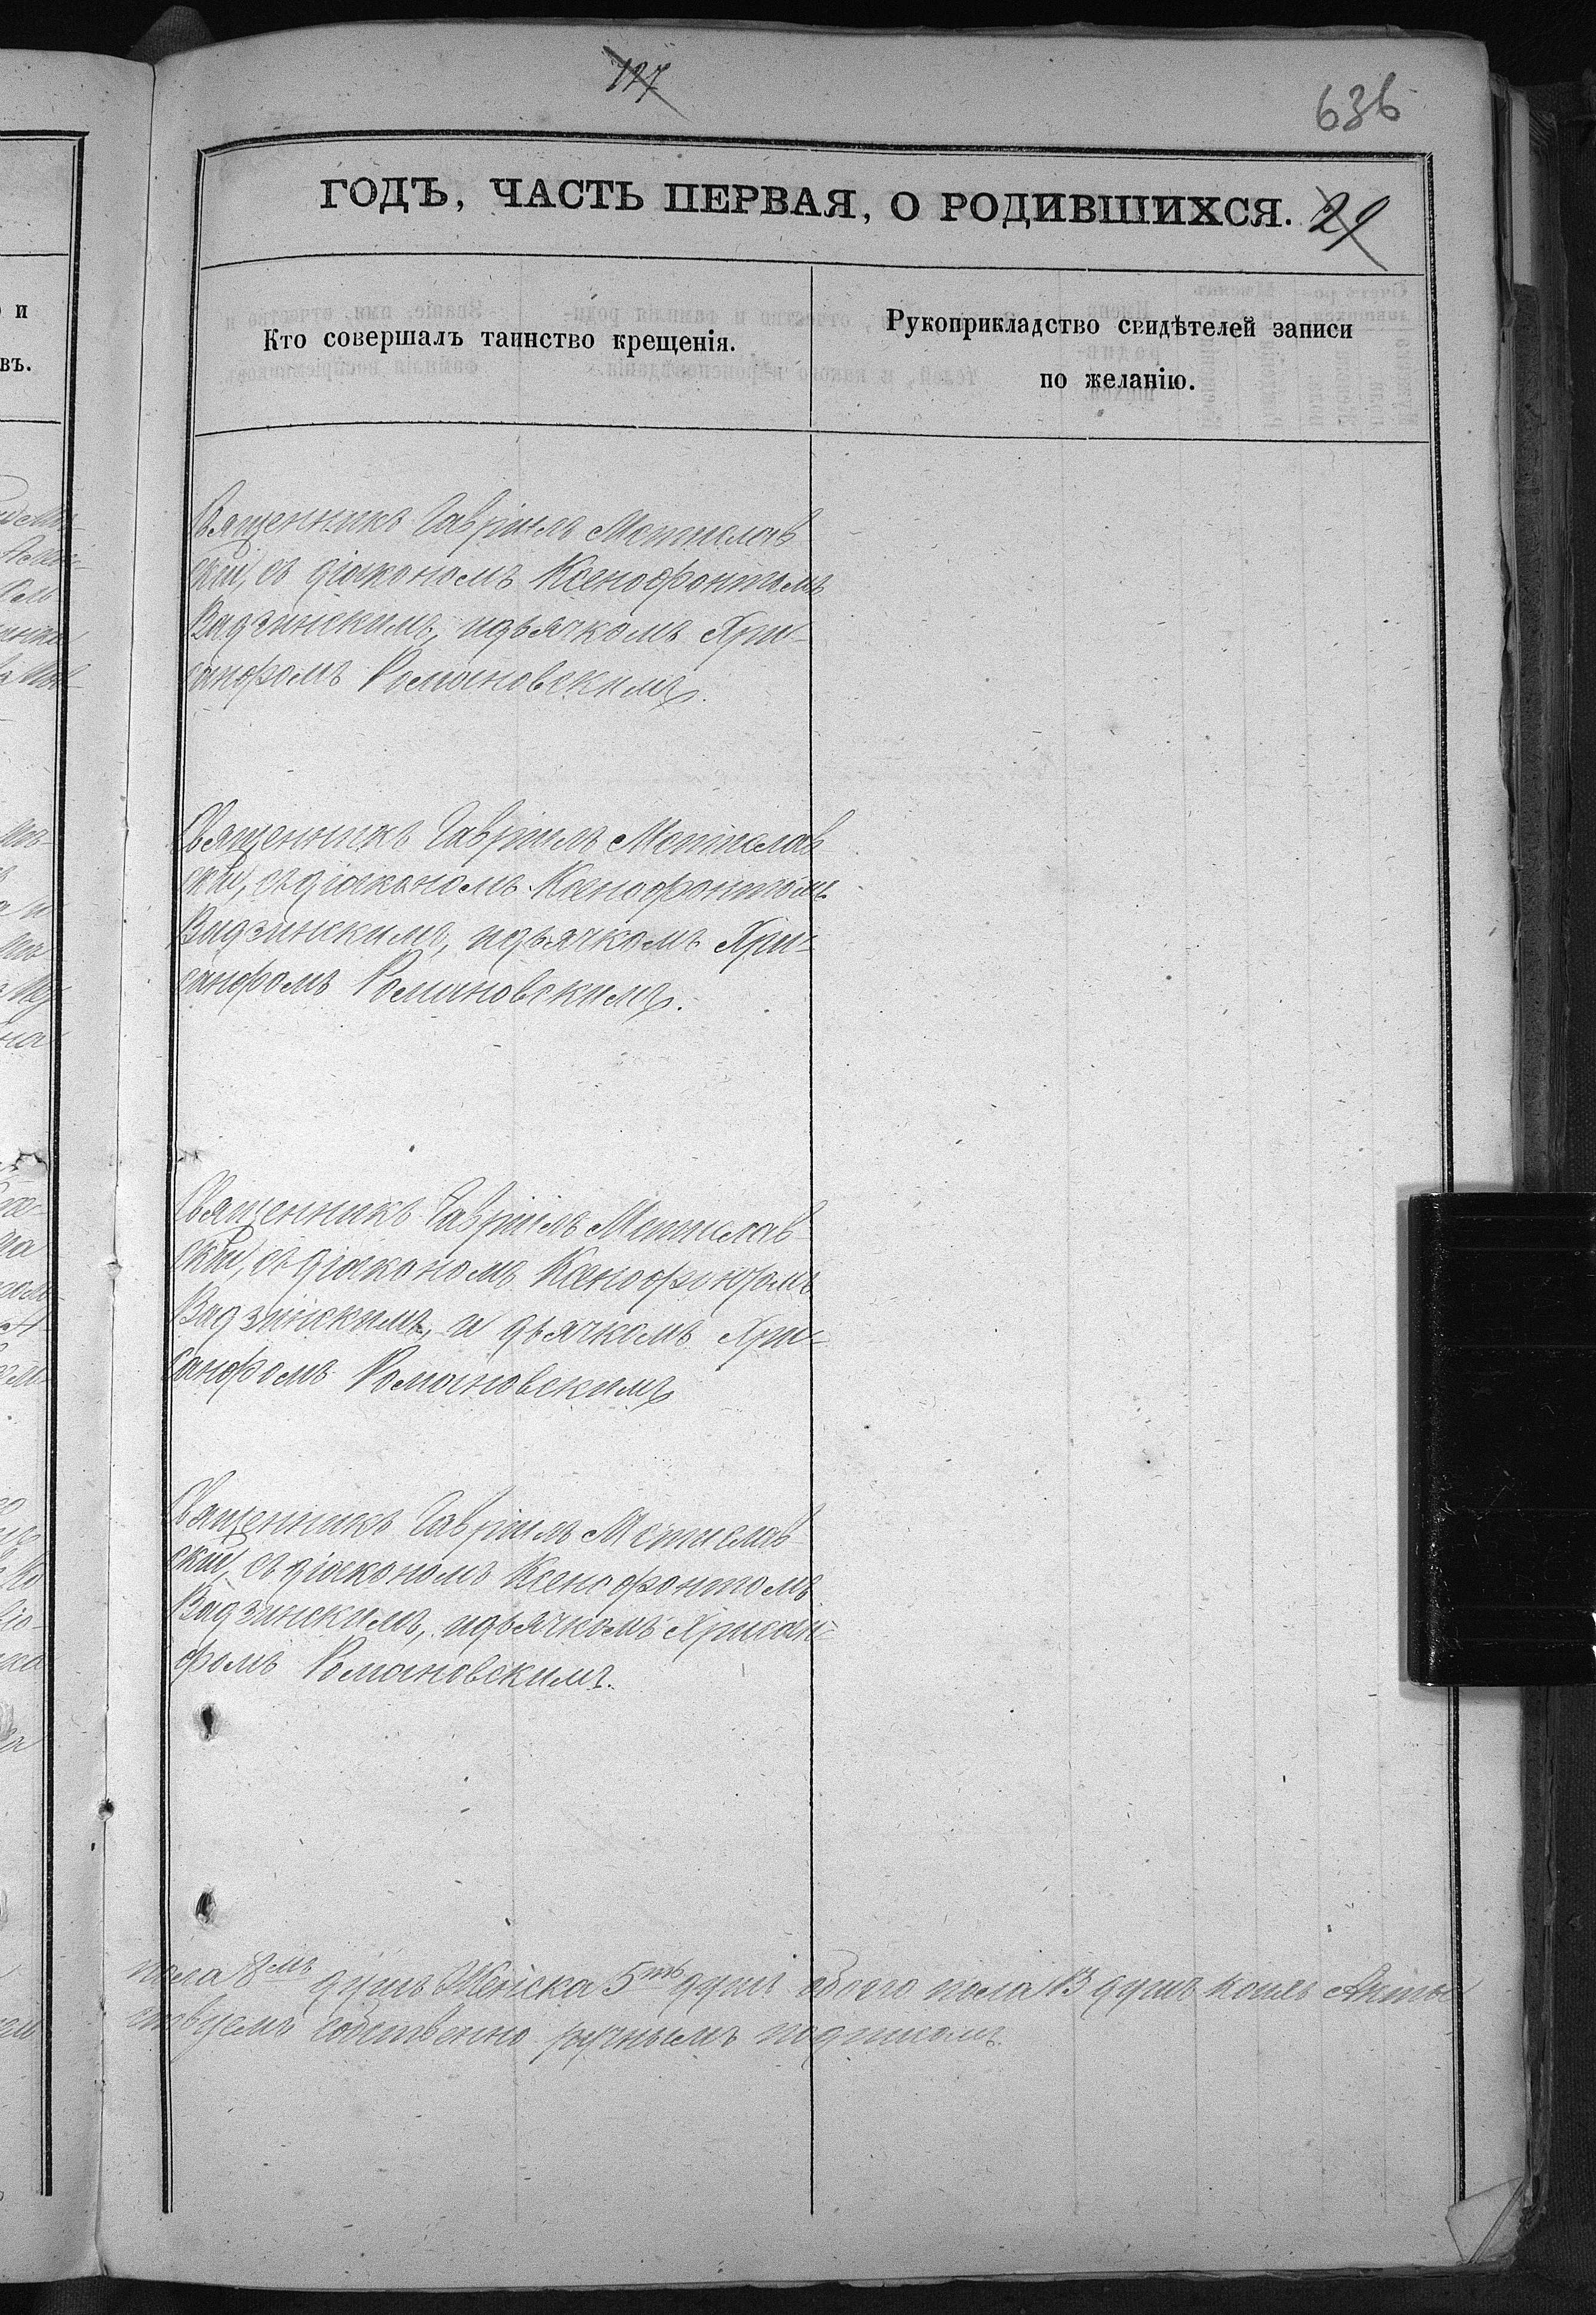 127
636
ГОДЪ, ЧАСТЬ ПЕРВАЯ, О РОДИВШИХСЯ. 29
Кто совершалъ таинство крещенія.
Рукоприкладство свидѣтелей записи
по желанію.
Священникъ Гавріилъ Мстислав
скій, съ діакономъ Ксенофонтомъ
Вадзинскимъ, идьячкомъ Хри-
санфомъ Романовскимъ.
Священникъ Гавріилъ Мстислав
скій, съ діакономъ Ксенофонтомъ
Вадзинскимъ, идьячкомъ Хри-
санфомъ Романовскимъ.
Священникъ Гавріилъ Мстислав
скій, съ діакономъ Ксенофонтомъ
Вадзинскимъ, и дьячкомъ Хри-
санфомъ Романовскимъ
Священникъ Гавріилъ Мстислав
скій, съ діакономъ Ксенофонтомъ
Вадзинскимъ, идьячкомъ Хрисан-
фомъ Романовскимъ.
пола 8мъ душъ Женска 5ть душъ обоего пола 13 душъ
собственно ручнымъ подписомъ.